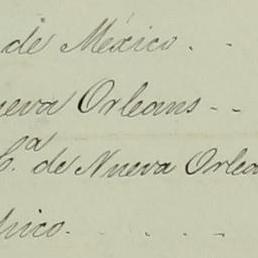 de México. - -
ueva Orleans - -
C.ª de Nueva Orlea
xico. - - - -